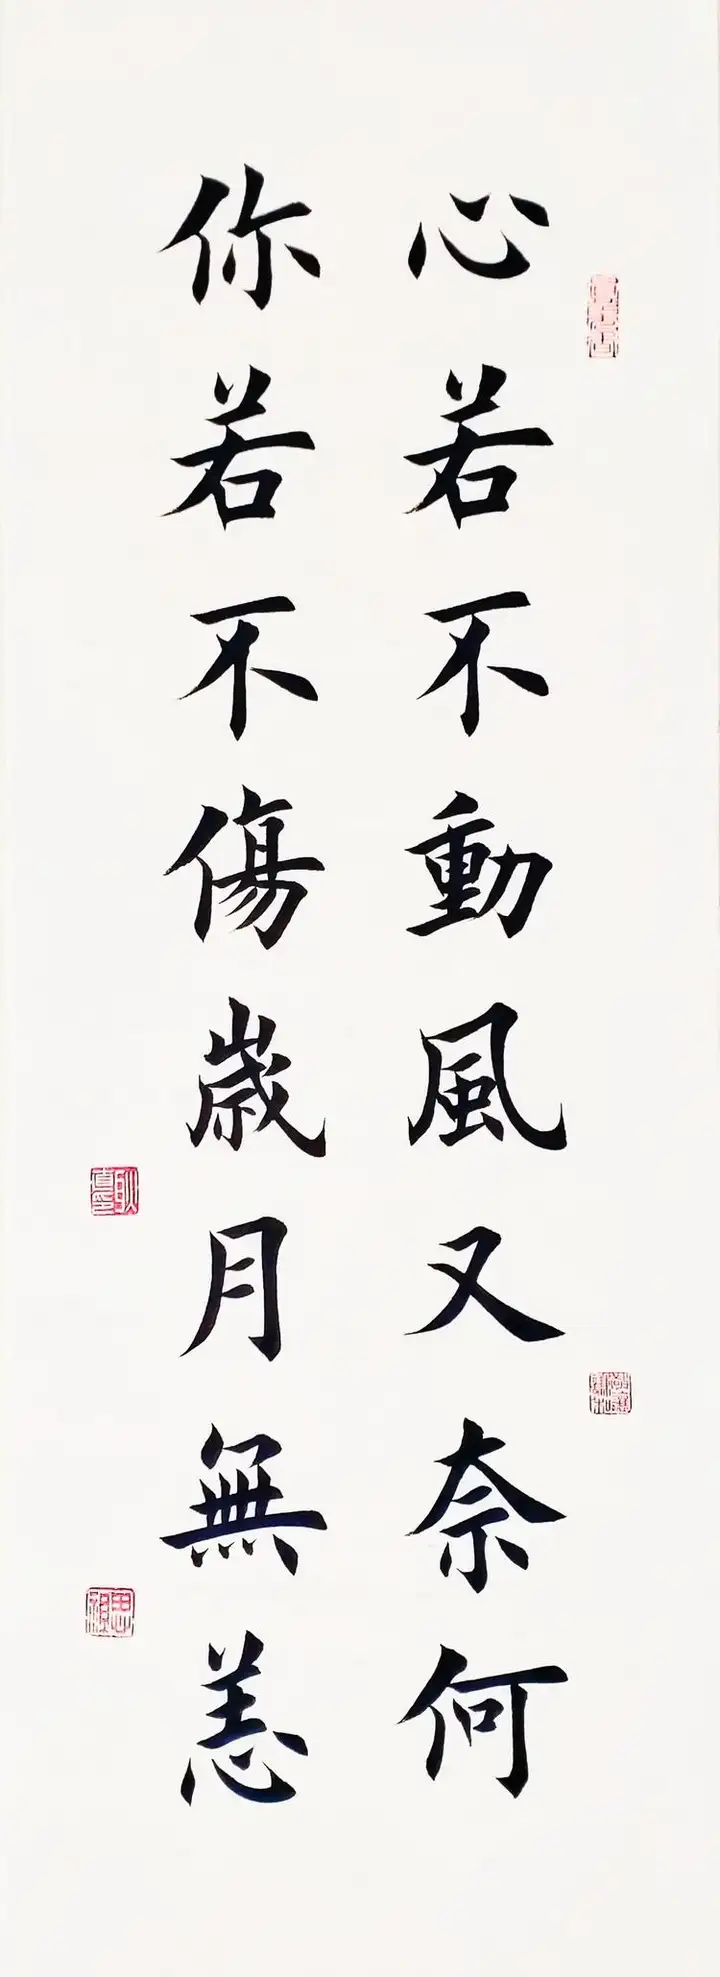 心若不動風又奈何
你若不傷歲月無恙